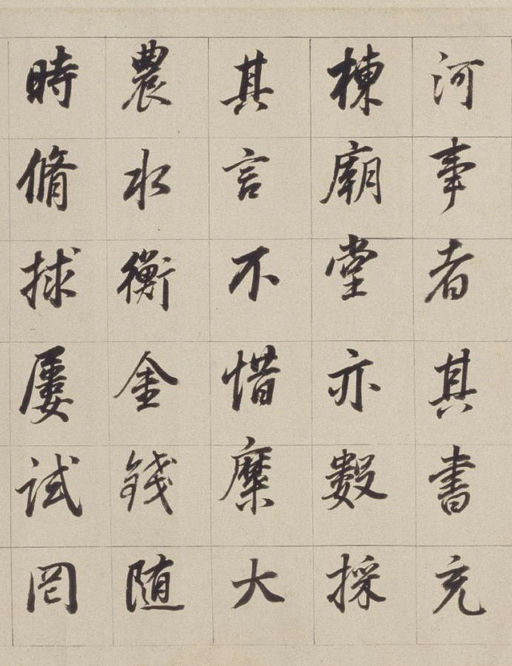 河事者其書充
棟廟堂亦數採
其言不惜糜大
農水衡金錢随
時脩捄屢試罔